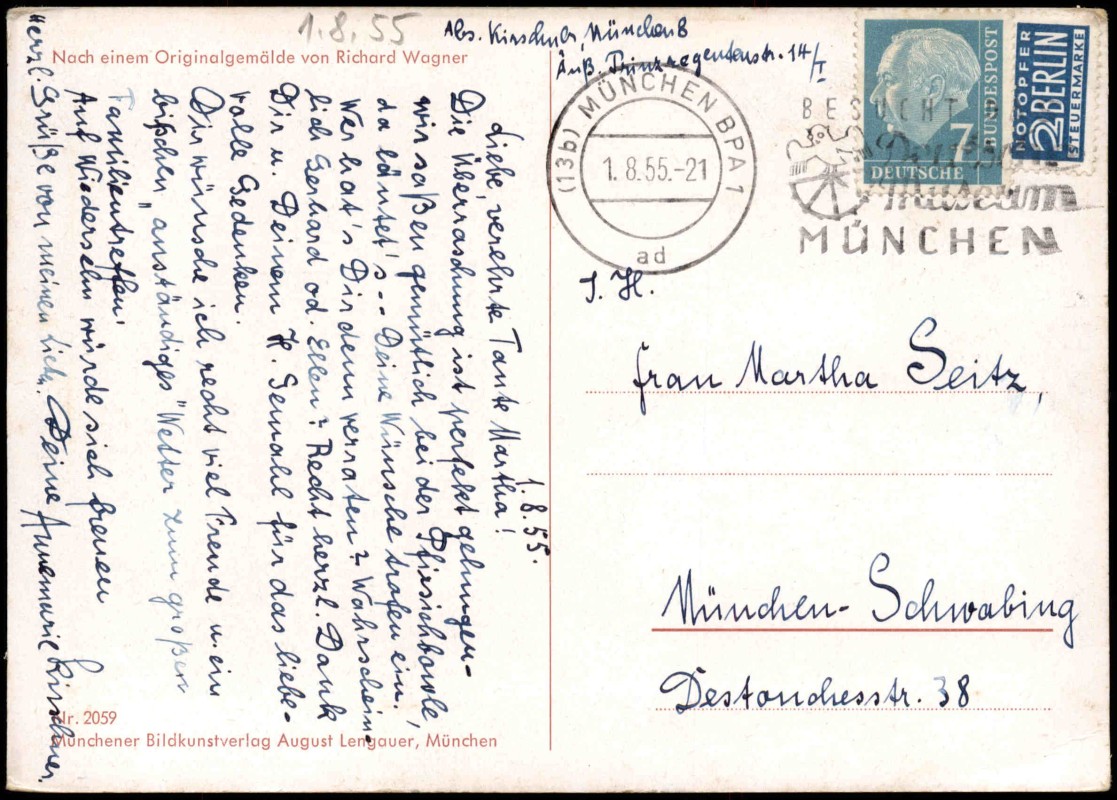 1.8.55
Nach einem Originalgemälde von Richard Wagner
Abs. Kirschner, München 8
Äuß. Prinzregentenstr. 14/I
(13b) MÜNCHEN BPA 1
1.8.55.-21
ad
BESUCHT D
Deutsche
Museum
MÜNCHEN
7
DEUTSCHE
BUNDESPOST
NOTOPFER
2 BERLIN
STEUERMARKE
1.8.55.
Liebe, verehrte Tante Martha!
Die Überraschung ist perfekt gelungen -
wir saßen gemütlich bei der Pfirsichbowle,
da läutet's -- Deine Wünsche trafen ein!
Wer hat's Dir denn verraten? Wahrschein-
lich Gerhard od. Ellen? Recht herzl. Dank
Dir u. Deinem H. Gemahl für das liebe-
volle Gedenken.
Dir wünsche ich recht viel Freude u. ein
bißchen "anständiges" Wetter zum großen
Familientreffen!
Auf Wiedersehn würde sich freuen
Herzl. Grüße von meinen Lieb. Deine Annemarie Kirschner.
S. H.
Frau Martha Seitz,
München-Schwabing
Destouchesstr. 38
Nr. 2059
Münchener Bildkunstverlag August Lengauer, München